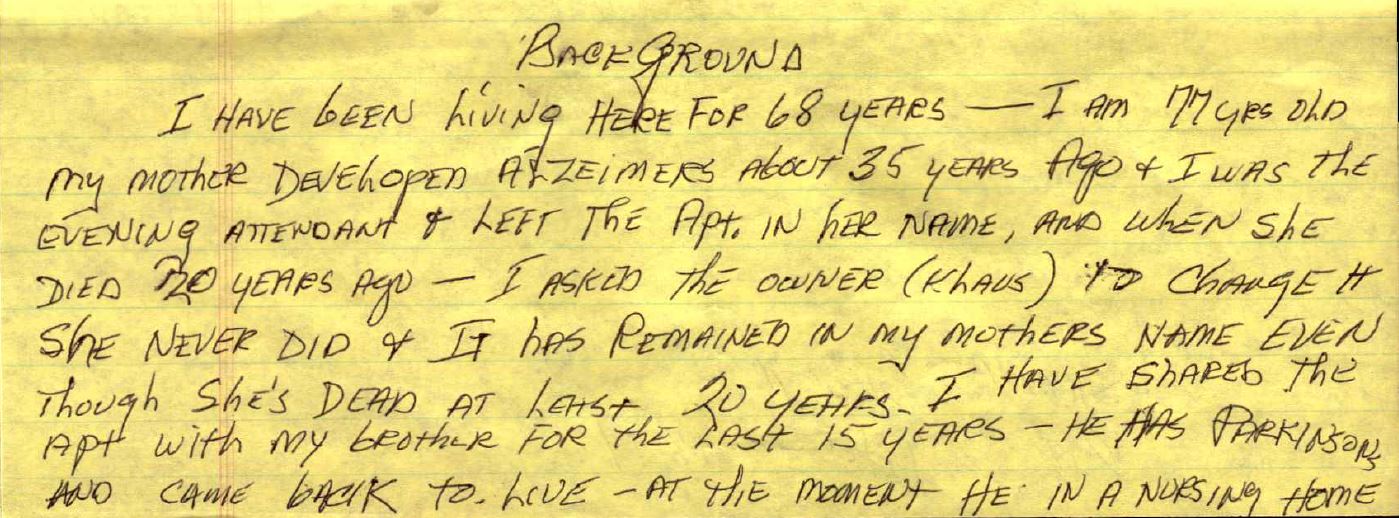 BACKGROUND
I HAVE bEEN LiViNg HERE FOR 68 yEARS — I AM 77 yRS OLD
My MOTHER DEVELOPED ALZEIMERS AbOUT 35 yEARS AgO & I WAS thE
EVENING ATTENDANT & LEFT ThE Apt. IN hER NAME, AND WhEN ShE
DIED 20 yEARS AgO — I ASKED thE OWNER (KLAUS) TO ChANgE It
ShE NEVER DID & IT hAS REMAINED IN My MOTHERS NAME EVEN
Though ShE'S DEAD AT LEASt 20 yEARS - I HAVE ShARED ThE
Apt with My bROthER FOR thE LASt 15 yEARS - HE HAS PARKINSONS
AND CAME bACK TO. LIVE - AT thE MOMENt HE IN A NURSINg HOME